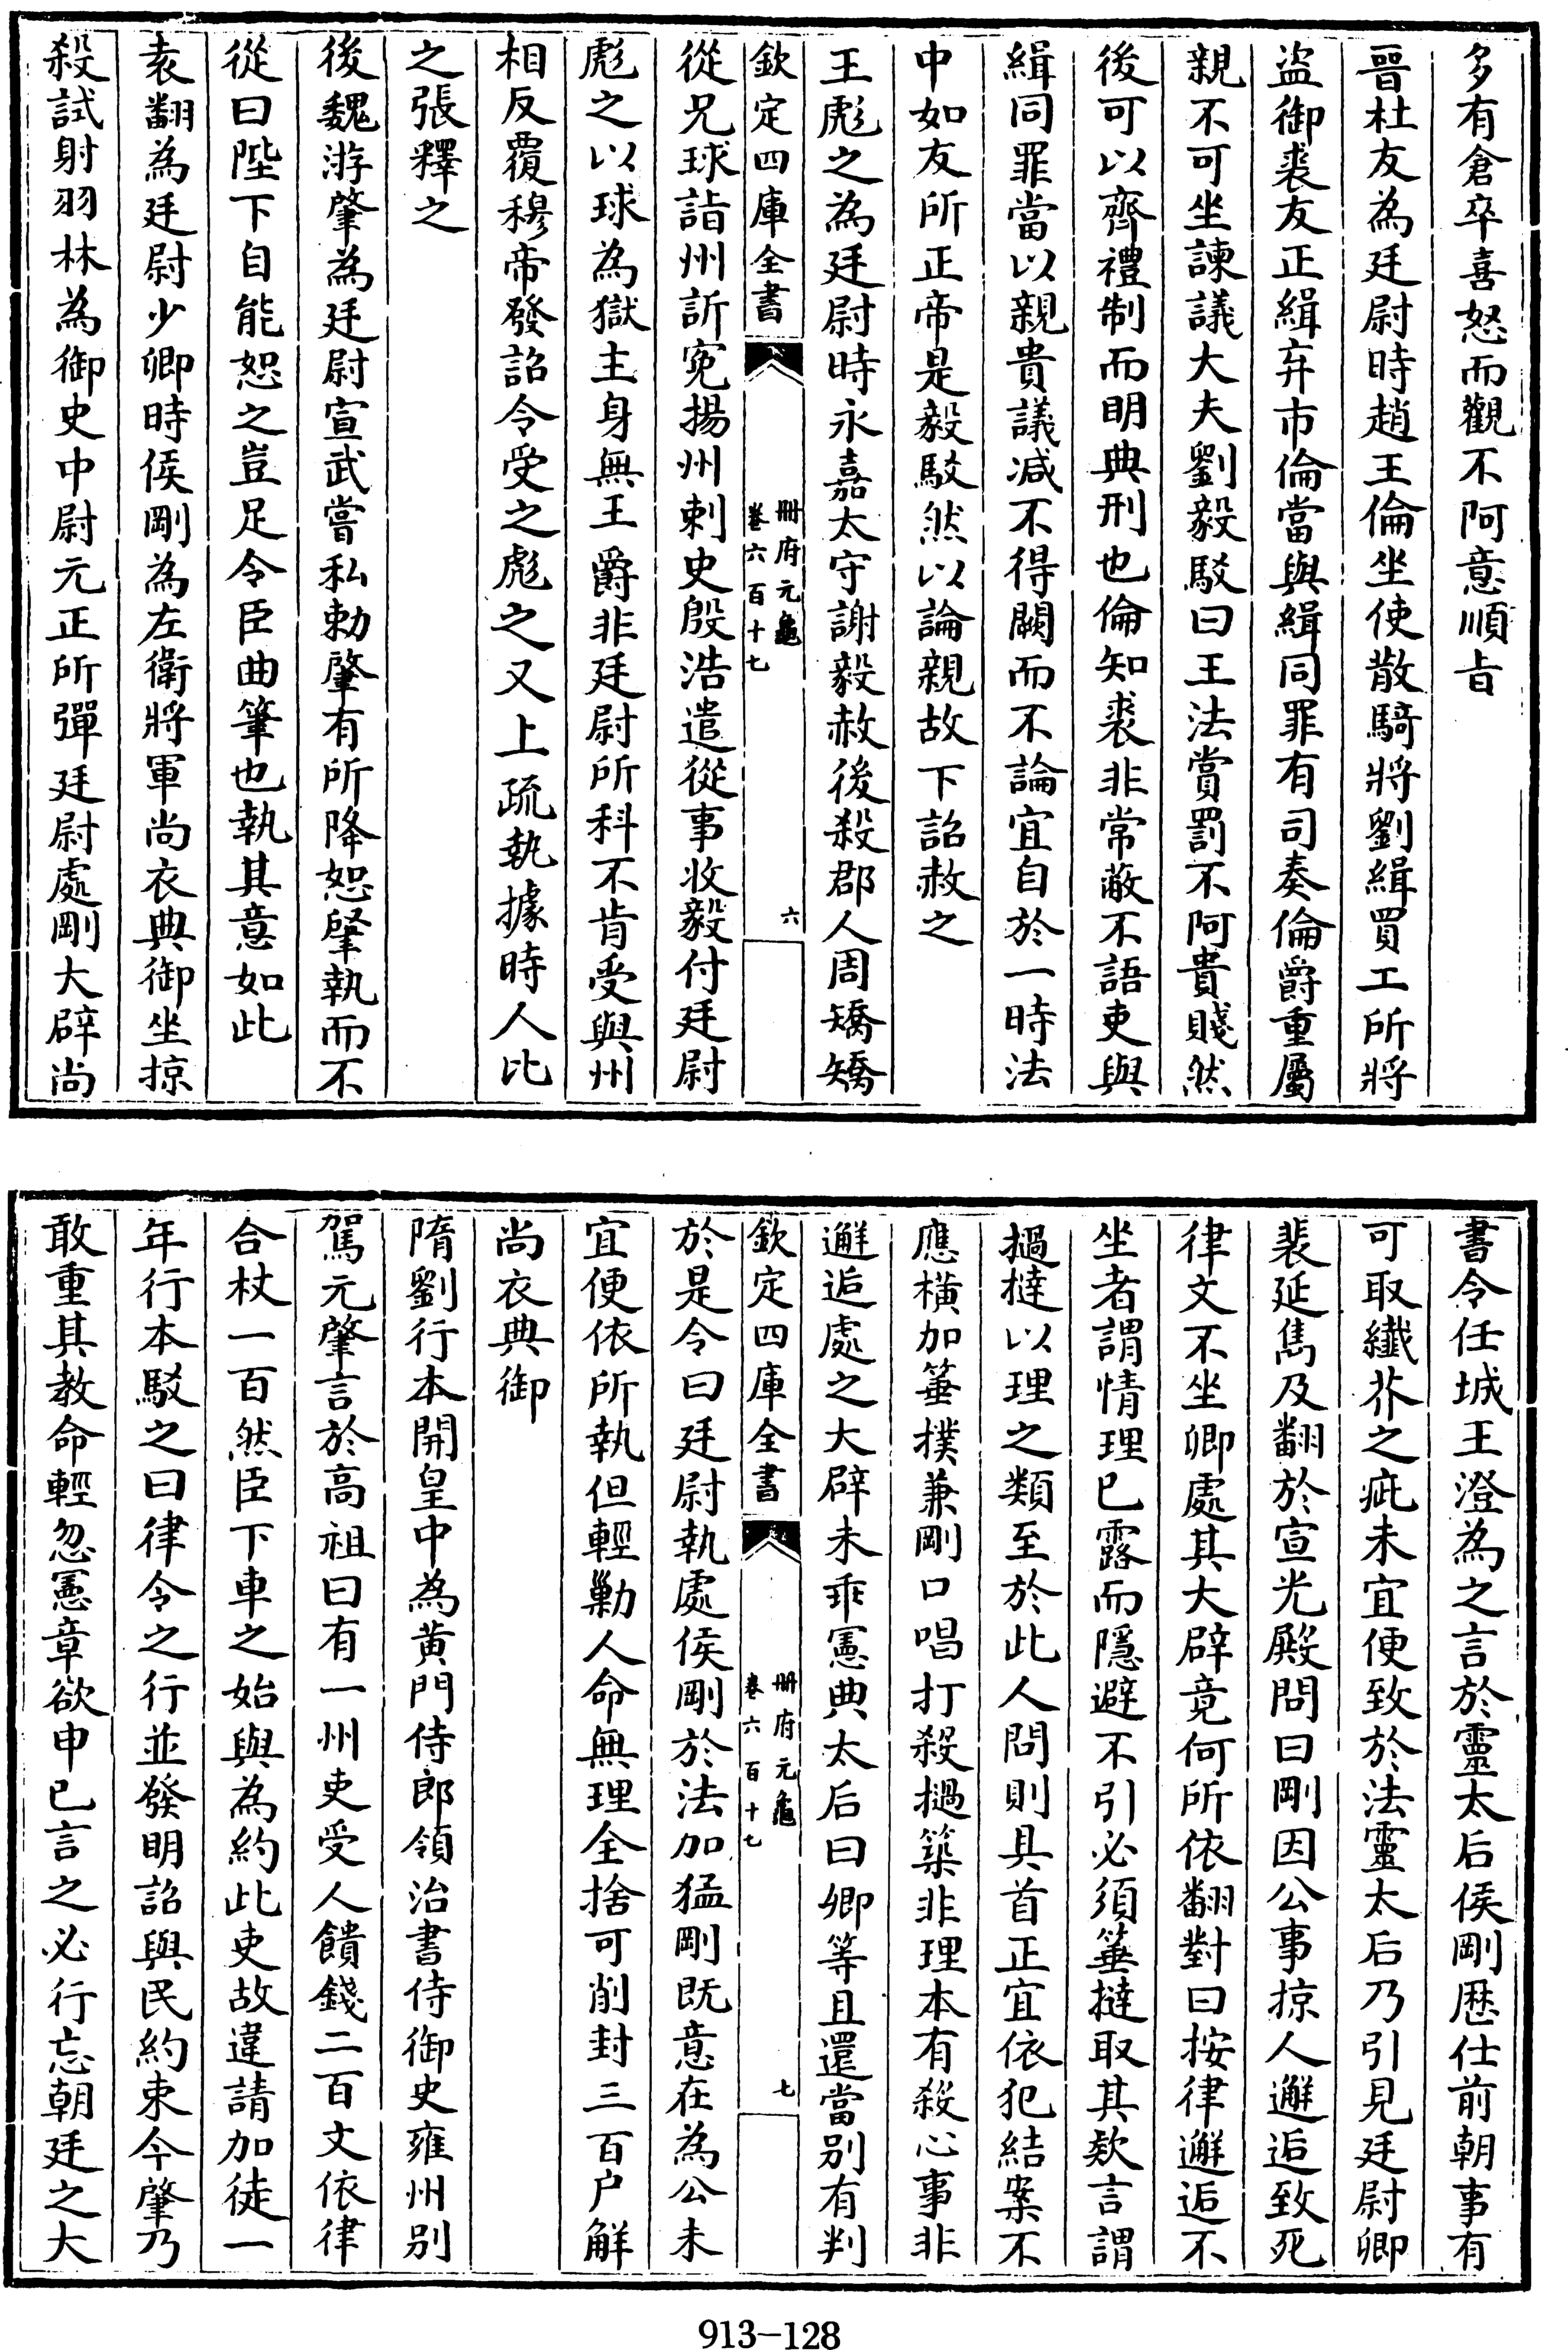 多有倉卒喜怒而觀不阿意順㫖
晉杜友為廷尉時趙王倫坐使散騎將劉緝買工所將
盜御裘友正緝弃市倫當與緝同罪有司奏倫爵重屬
親不可坐諫議大夫劉毅駁曰王法賞罰不阿貴賤然
後可以齊禮制而明典刑也倫知裘非常蔽不語吏與
緝同罪當以親貴議减不得闕而不論宜自於一時法
中如友所正帝是毅駁然以論親故下詔赦之
王彪之為廷尉時永嘉太守謝毅赦後殺郡人周矯矯
欽定四庫全書
冊府元龜
卷六百十七
六
從兄球詣州訴寃揚州刺史殷浩遣從事收毅付廷尉
彪之以球為獄主身無王爵非廷尉所科不肯受與州
相反覆穆帝發詔令受之彪之又上疏執據時人比
之張釋之
後魏游肇為廷尉宣武嘗私勅肇有所降恕肇執而不
從曰陛下自能恕之豈足令臣曲筆也執其意如此
袁翻為廷尉少卿時侯剛為左衛將軍尚衣典御坐掠
殺試射羽林為御史中尉元正所彈廷尉處剛大辟尚
書令任城王澄為之言於靈太后侯剛歴仕前朝事有
可取纎芥之疵未宜便致於法靈太后乃引見廷尉卿
裴延雋及翻於宣光殿問曰剛因公事掠人邂逅致死
律文不坐卿處其大辟竟何所依翻對曰按律邂逅不
坐者謂情理已露而隱避不引必須箠撻取其欵言謂
撾撻以理之類至於此人問則具首正宜依犯結案不
應橫加箠撲兼剛口唱打殺撾築非理本有殺心事非
邂逅處之大辟未乖憲典太后曰卿等且還當别有判
欽定四庫全書
冊府元龜
卷六百十七
七
於是令曰廷尉執處侯剛於法加猛剛既意在為公未
宜便依所執但輕勦人命無理全捨可削封三百户解
尚衣典御
隋劉行本開皇中為黄門侍郎領治書侍御史雍州别
駕元肇言於高祖曰有一州吏受人饋錢二百文依律
合杖一百然臣下車之始與為約此吏故違請加徒一
年行本駁之曰律令之行並發明詔與民約束今肇乃
敢重其教命輕忽憲章欲申已言之必行忘朝廷之大
913-128